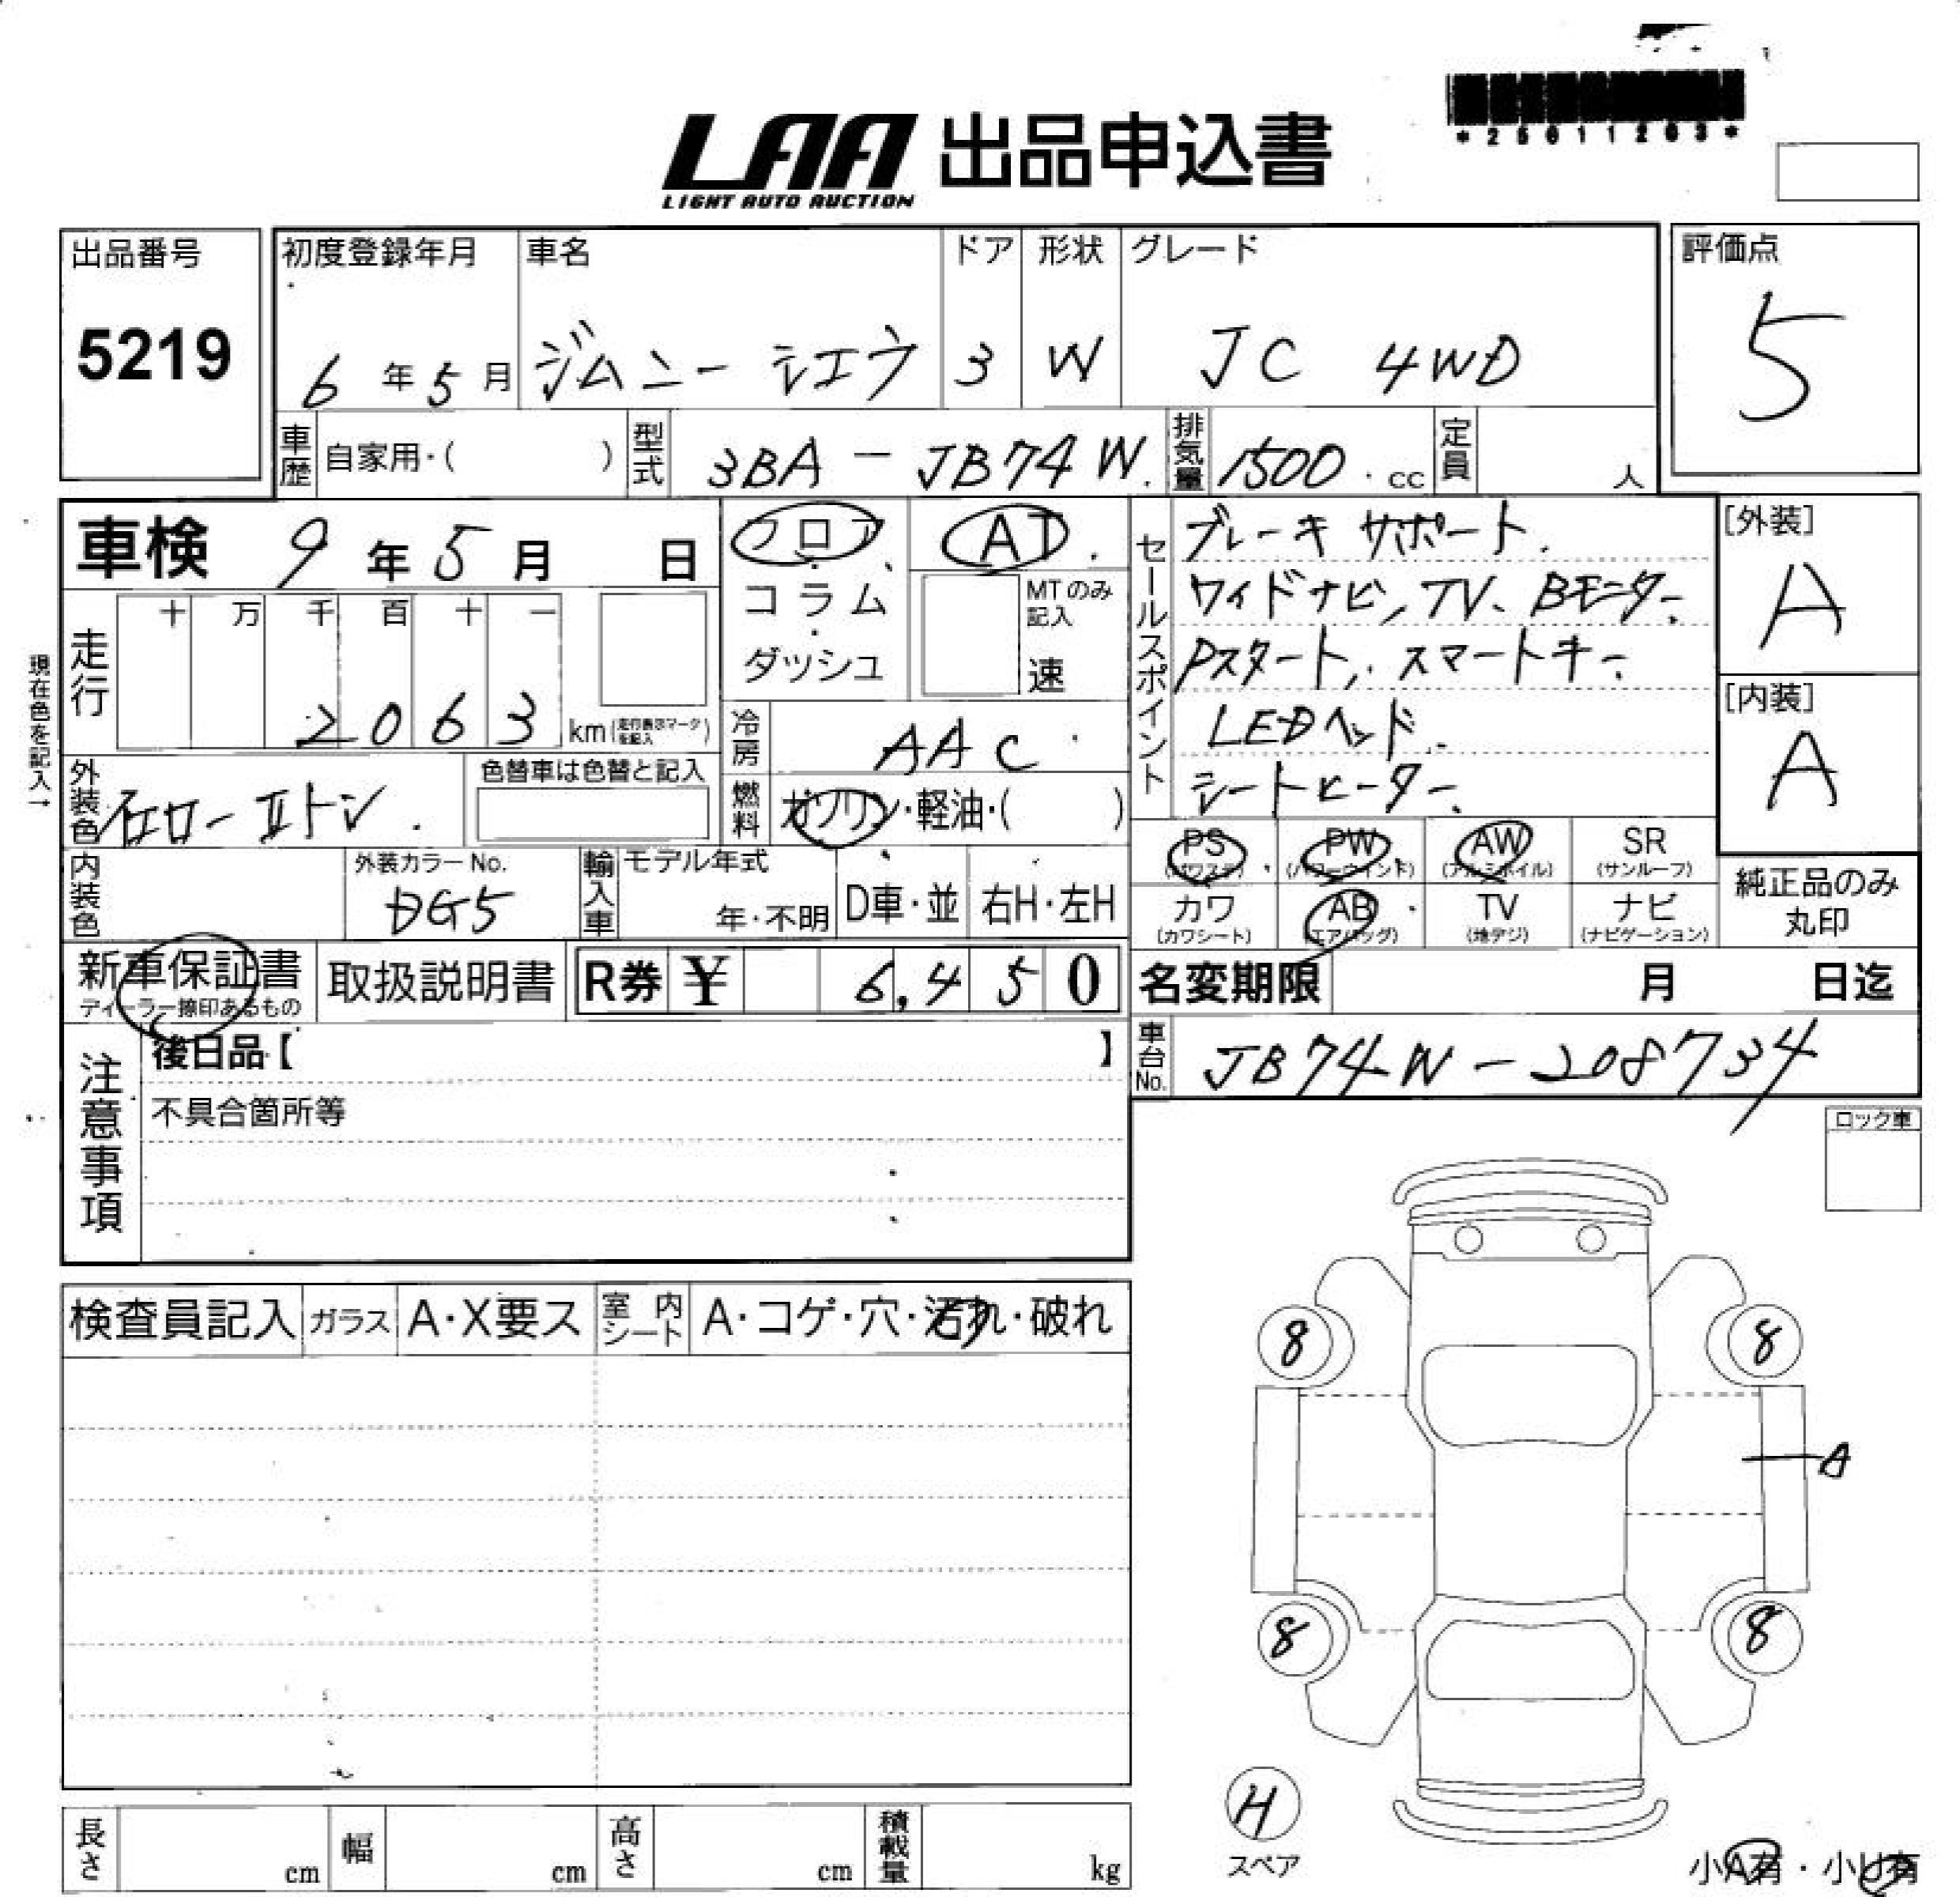 *25011203*
LAA 出品申込書
LIGHT AUTO AUCTION
出品番号 初度登録年月 車名 ドア 形状 グレード 評価点
5219 6年5月 ジムニー シエラ 3 W JC 4WD 5
車歴 自家用・( ) 型式 3BA-JB74W 排気量 1500 cc 定員 人
車検 9年5月 日
フロア
コラム
ダッシュ
AT
MTのみ記入
速
走行 十 万 千 百 十 一
2063 km(走行表示マークを記入)
現在色を記入→
冷房 AAC
燃料 ガソリン・軽油・( )
外装色 2トン
色替車は色替と記入
内装色
外装カラーNo. DG5
輸入車 モデル年式 年・不明 D車・並 右H・左H
セールスポイント
ブレーキサポート
ワイドナビ, TV、Bモニター
Pスタート, スマートキー
LEDヘッド
シートヒーター
[外装]
A
[内装]
A
PS (パワステ) PW (パワーウインド) AW (アルミホイル) SR (サンルーフ)
カワ (カワシート) AB (エアバッグ) TV (地デジ) ナビ (ナビゲーション)
純正品のみ
丸印
新車保証書
ディーラー捺印あるもの
取扱説明書
R券 ¥ 6,450
名変期限 月 日迄
車台No. JB74W-208734
注意事項
後日品【 】
不具合箇所等
ロック車
検査員記入 ガラス A・X要ス 室内シート A・コゲ・穴・汚れ・破れ
8 8
A
8 8
H
スペア
小A有・小U有
長さ cm 幅 cm 高さ cm 積載量 kg